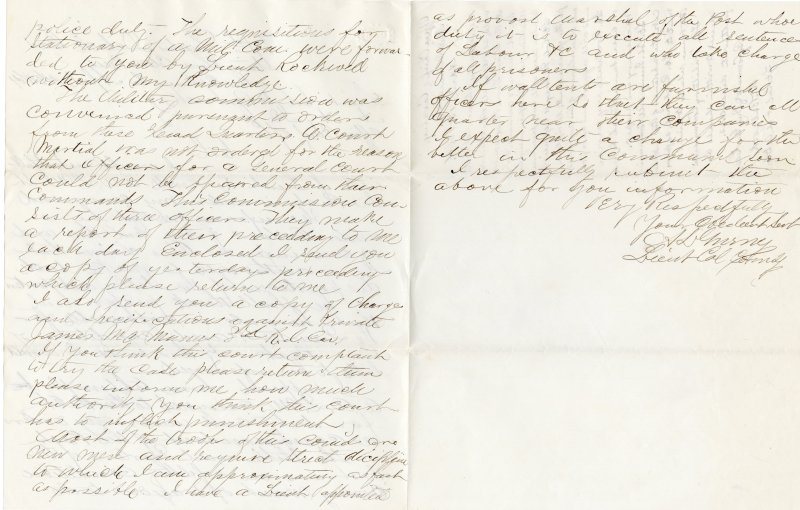 police duty. The requisitions for
Stationary of a Mil. Com. were forwar-
ded to you by Lieut Lockwood
without my Knowledge
The Military Commission was
convened pursuant to orders
from these Head Quarters A Court
Martial was not ordered for the reason
that officers for a General Court
could not be spared from their
Commands This Commission con
sists of three officers They make
a report of their preceeding to me
each day Enclosed I send you
a copy of yesterdays preceeding
which please return to me
I also send you a copy of Charge
and Specifications against Private
James Mc Manus 3d R.I. Cav.
If you think this court
to try the case please return them
please inform me how much
authority you think this court
has to inflict punishment
Most of the troops of this com'd are
new men and require strict
to which I am as fast
as possible I have a Lieut appointed
as provost Marshal of the Post whose
duty it is to execute all sentences
of Labour &c and who take charge
of all prisoners
If wall tents are furnished
officers here so that they can all
quarter near their companies
I expect quite a change for the
better in this Command soon
I respectfully submit the
above for you information
Very Respectfully
Your Obedient Servt
Lieut Col Comdg